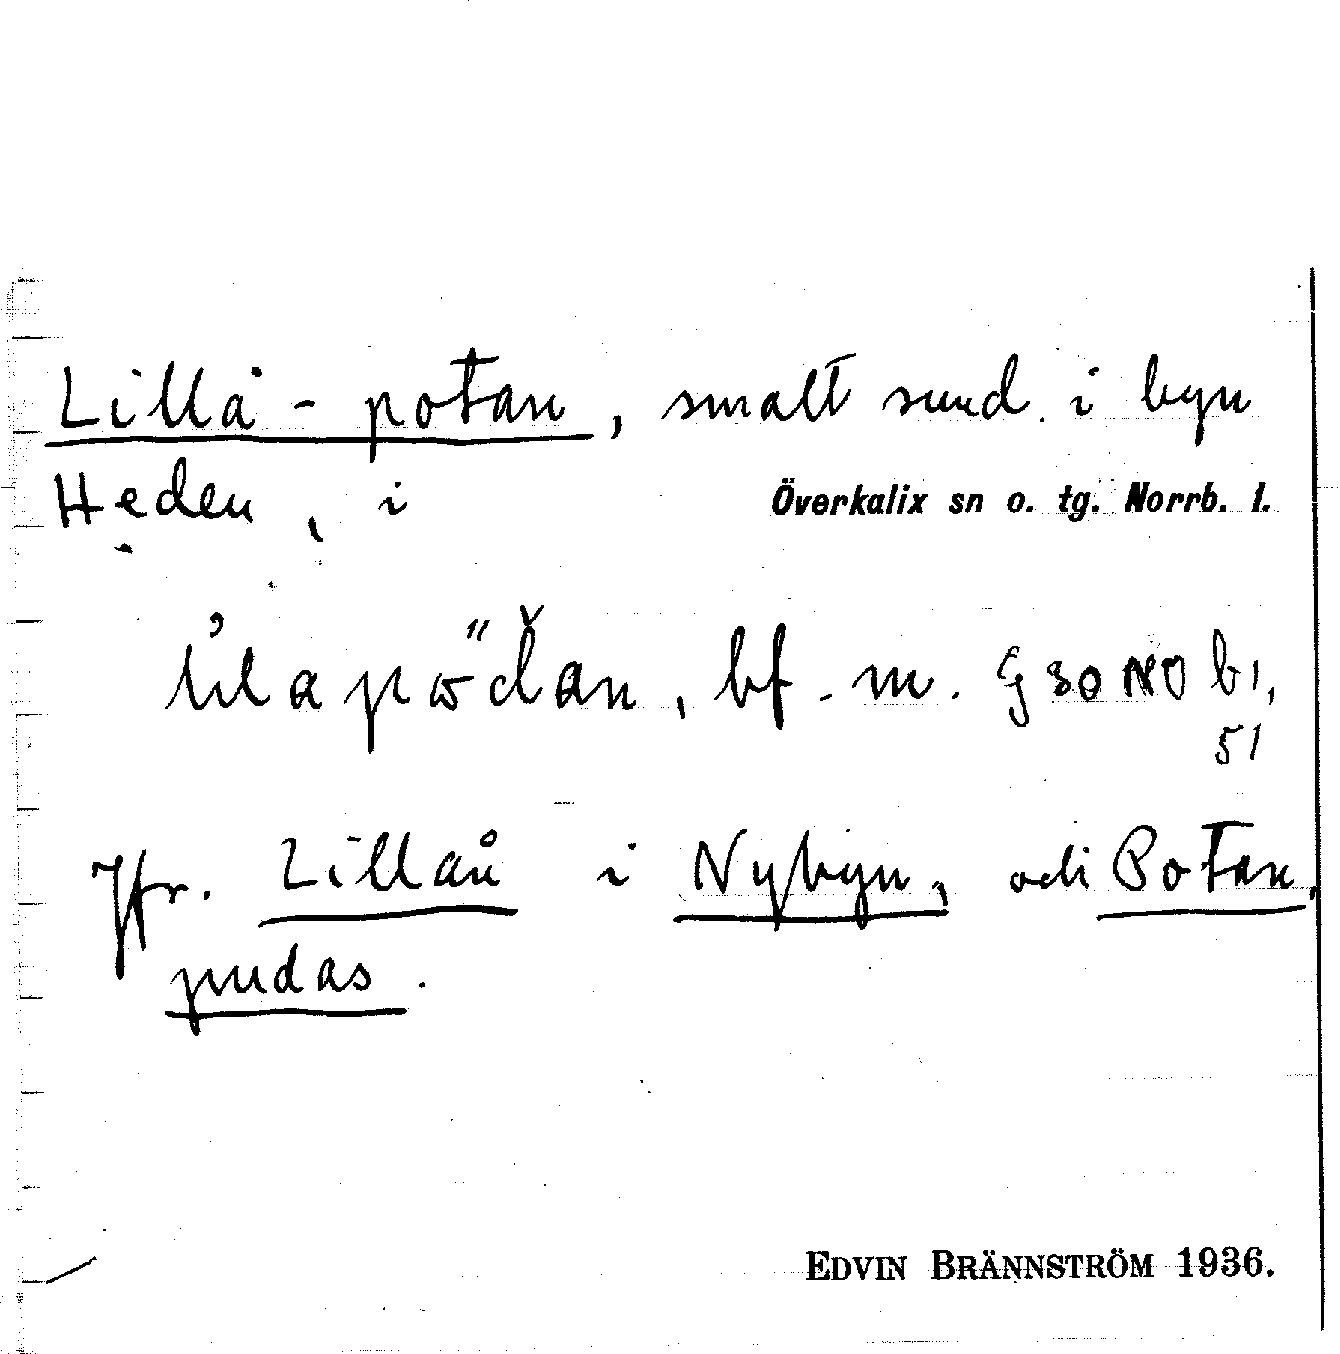 Lillå-potan, smalt sund i byn
Heden, i Överkalix sn o. tg. Norrb. l.
bf. m. G30NO b1,
51
Jfr. Lillån i Nybyn, och Potan,
pudas.
EDVIN BRÄNNSTRÖM 1936.